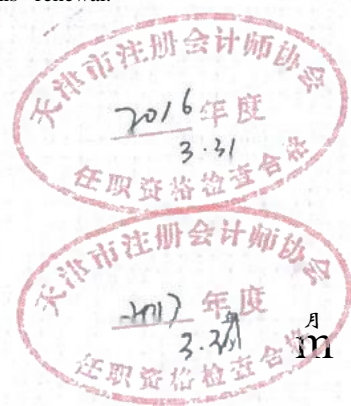 renewal.
天津市注册会计师协会
2016年度
3.31
任职资格检查合格
天津市注册会计师协会
2017年度
任职资格检查合格
月
m